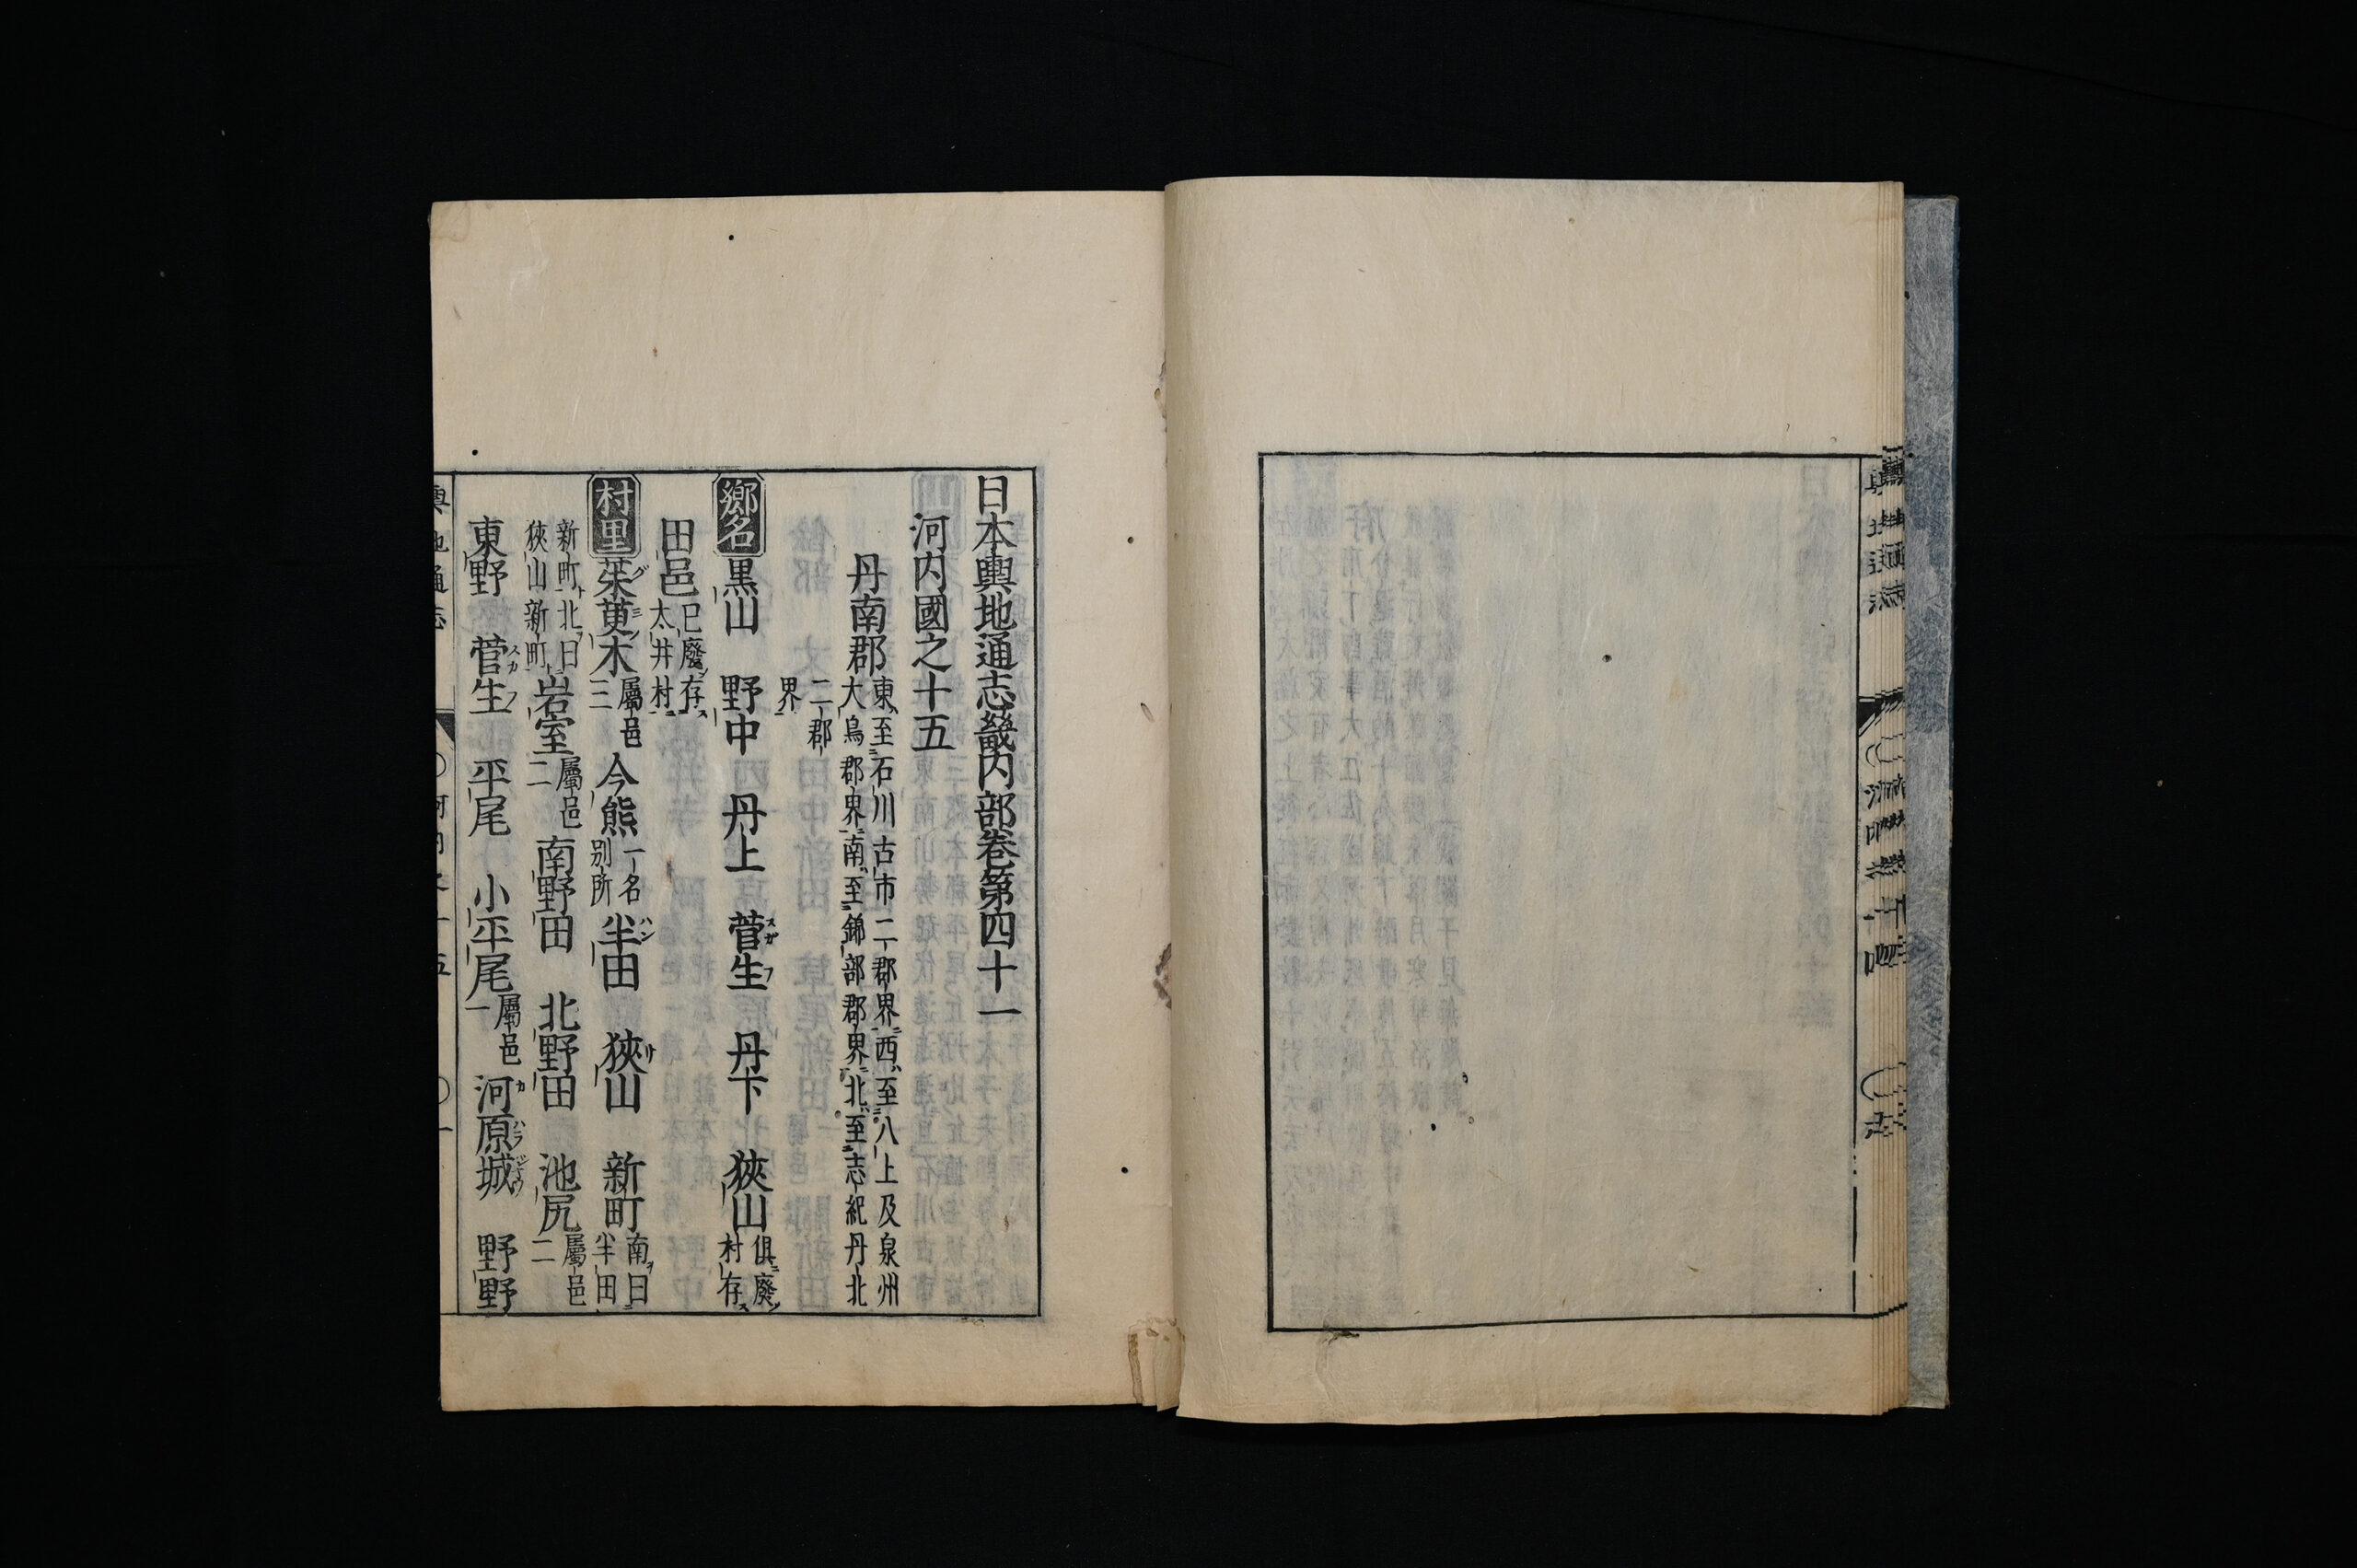 日本輿地通志畿内部巻第四十一
河内國之十五
丹南郡 東至石川古市二郡界西至八上及泉州
大鳥郡界南至錦部郡界北至志紀丹北
二郡
界
郷名 黒山 野中 丹上 菅生 丹下 狹山 倶廢
村存
田邑 已廢存
太井村
村里 茱萸木 屬邑
三 今熊 一名
別所 半田 狹山 新町 南曰
半田
新町北曰
狹山新町 岩室 屬邑
二 南野田 北野田 池尻 屬邑
二
東野 菅生 平尾 小平尾 屬邑
一 河原城 野野